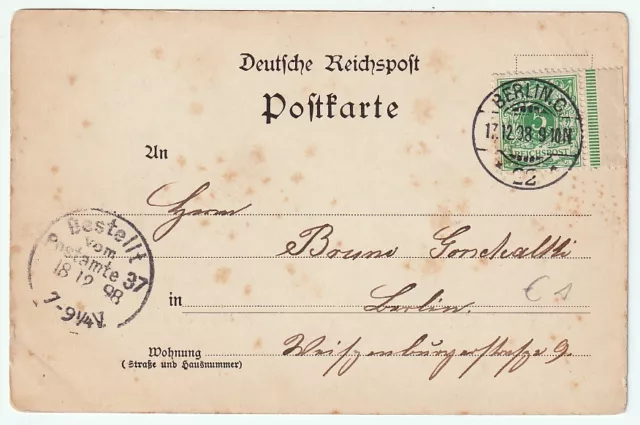 Deutsche Reichspost
Postkarte
BERLIN.C.
17.12.98 9-10N
22
5
REICHSPOST
An
Herrn
Bruno
in Berlin.
Wohnung
(Straße und Hausnummer)
9.
Bestellt
vom
Postamte 37
18 12 98
7-9¼V